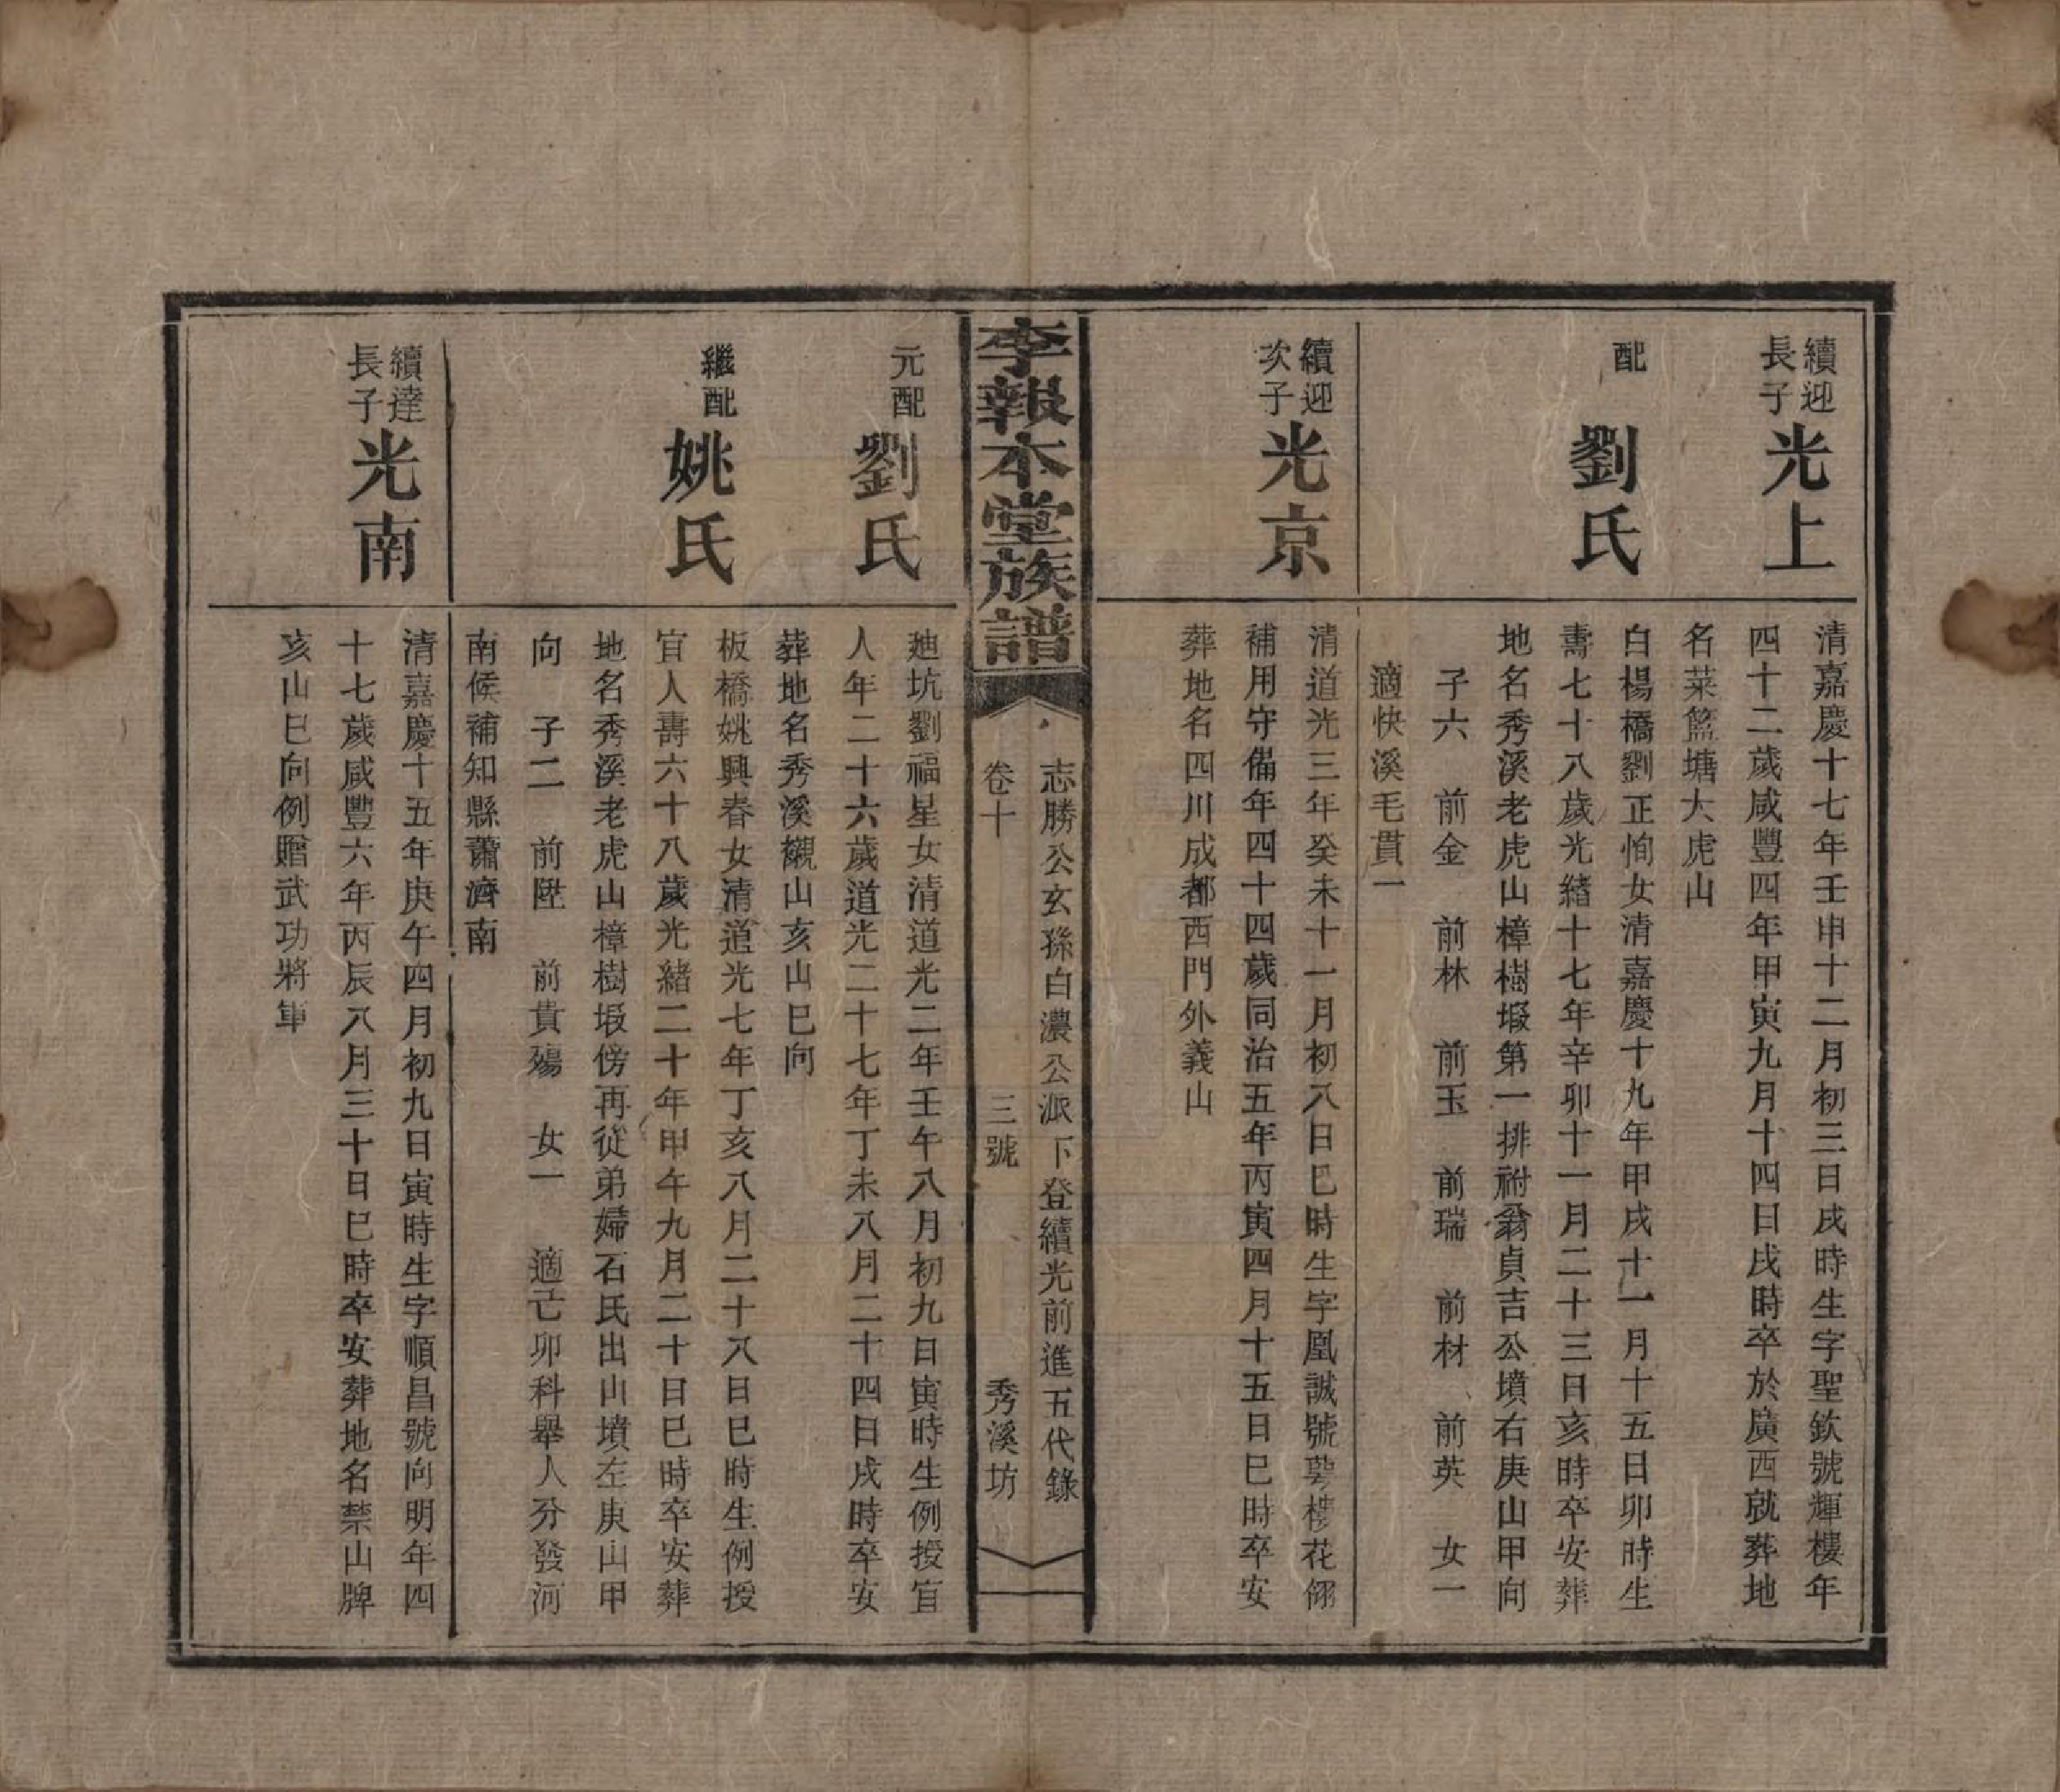 續迎
長子
光上
清嘉慶十七年壬申十二月初三日戌時生字聖欽號輝樓年
四十二歲咸豐四年甲寅九月十四日戌時卒於廣西就葬地
名菜籃塘大虎山
配
劉氏
白楊橋劉正恂女清嘉慶十九年甲戌十一月十五日卯時生
壽七十八歲光緒十七年辛卯十一月二十三日亥時卒安葬
地名秀溪老虎山樟樹塅第一排祔翁貞吉公墳右庚山甲向
子六 前金 前林 前玉 前瑞 前材 前英 女一
適快溪毛貫一
續迎
次子
光京
清道光三年癸未十一月初八日巳時生字凰誠號樓花翎
補用守備年四十四歲同治五年丙寅四月十五日巳時卒安
葬地名四川成都西門外義山
李報本堂族譜
志勝公玄孫白濃公派下登續光前進五代錄
卷十 三號 秀溪坊
元配
劉氏
廸坑劉福星女清道光二年壬午八月初九日寅時生例授宜
人年二十六歲道光二十七年丁未八月二十四日戌時卒安
葬地名秀溪襯山亥山巳向
繼配
姚氏
板橋姚興春女清道光七年丁亥八月二十八日巳時生例授
宜人壽六十八歲光緒二十年甲午九月二十日巳時卒安葬
地名秀溪老虎山樟樹塅傍再從弟婦石氏出山墳左庚山甲
向 子二 前陞 前貴殤 女一 適己卯科舉人分發河
南候補知縣蕭濟南
續達
長子
光南
清嘉慶十五年庚午四月初九日寅時生字順昌號向明年四
十七歲咸豐六年丙辰八月三十日巳時卒安葬地名禁山牌
亥山巳向例贈武功將軍